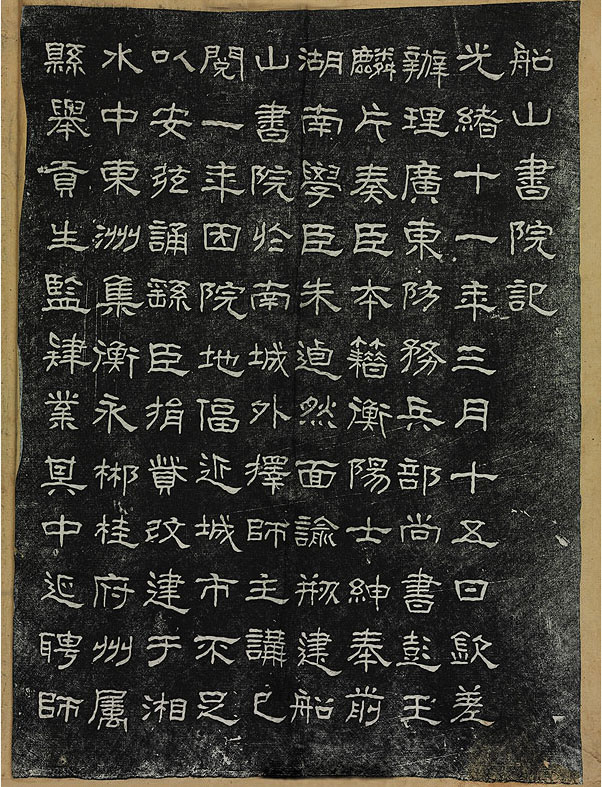 船山書院記
光緒十一年三月十五日欽差
辦理廣東防務兵部尚書彭玉
麟片奏臣本籍衡陽士紳奉前
湖南學臣朱逌然面諭剏建船
山書院於南城外擇師主講已
閱一年因院地偪近城市不足
以安弦誦繇臣捐貲改建于湘
水中東洲集衡永郴桂府州属
縣舉貢生監肄業其中延聘師